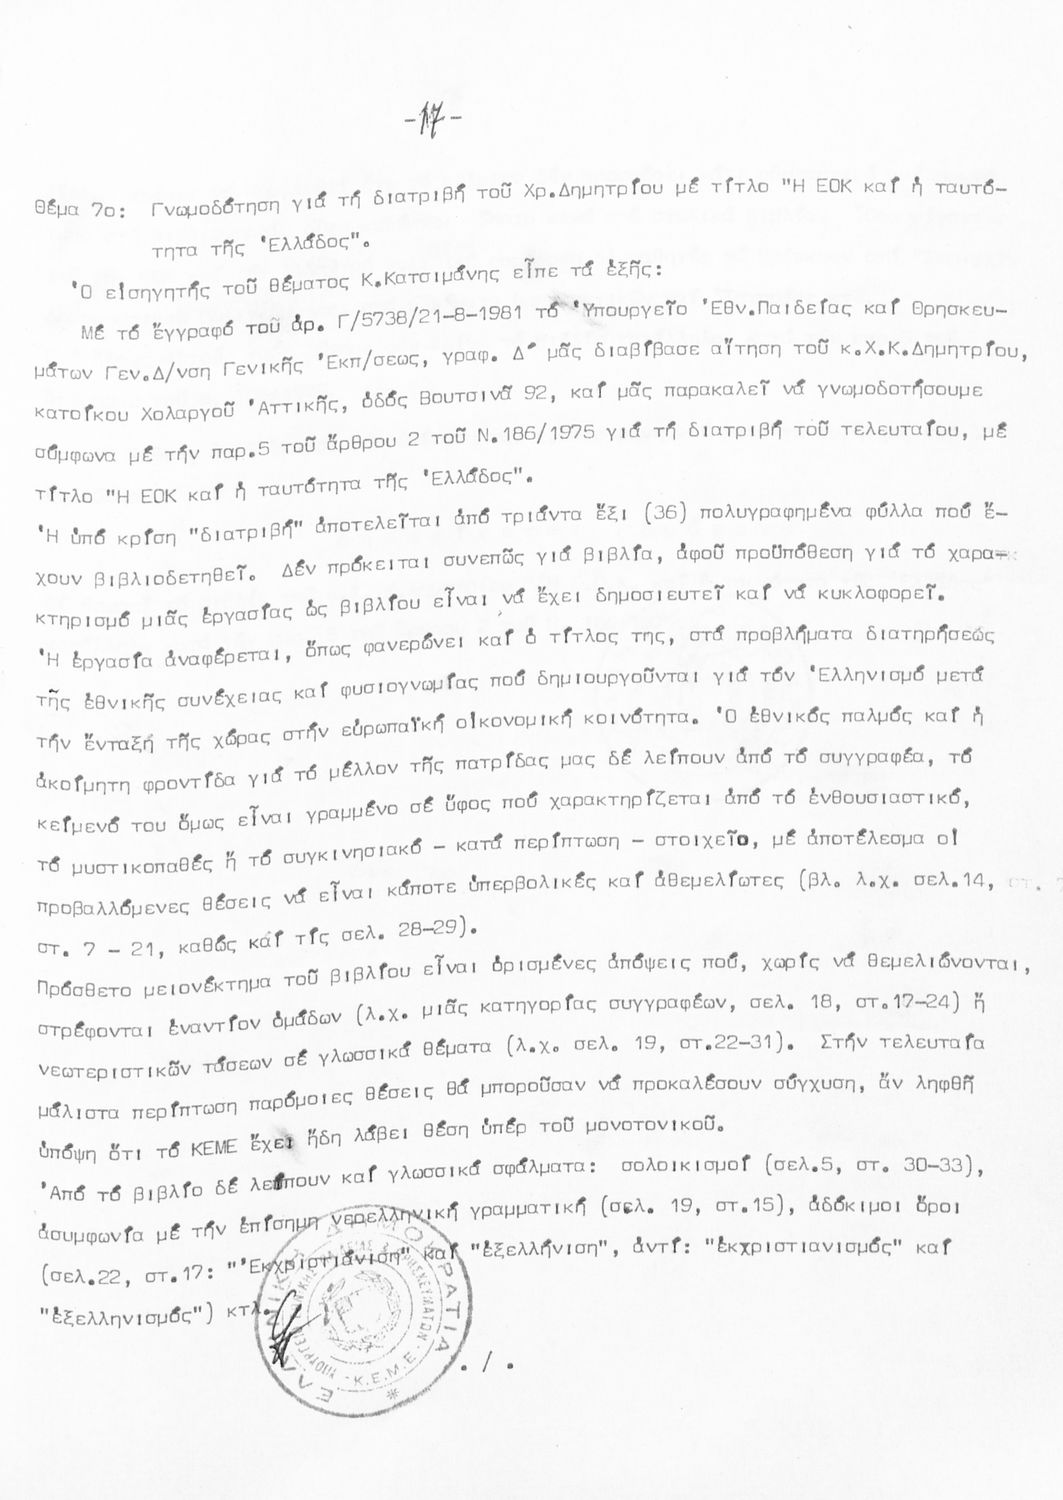 -17-
Θέμα 7ο: Γνωμοδότηση γιά τή διατριβή τοῦ Χρ.Δημητρίου μέ τίτλο "Η ΕΟΚ καί ἡ ταυτό-
τητα τῆς Ἑλλάδος".
Ὁ εἰσηγητής τοῦ θέματος Κ.Κατσιμάνης εἶπε τά ἑξῆς:
Μέ τό ἔγγραφό τοῦ ἀρ. Γ/5738/21-8-1981 τό Ὑπουργεῖο Ἐθν.Παιδείας καί Θρησκευ-
μάτων Γεν.Δ/νση Γενικῆς Ἐκπ/σεως, γραφ. Δ΄ μᾶς διαβίβασε αἴτηση τοῦ κ.Χ.Κ.Δημητρίου,
κατοίκου Χολαργοῦ Ἀττικῆς, ὁδός Βουτσινᾶ 92, καί μᾶς παρακαλεῖ νά γνωμοδοτήσουμε
σύμφωνα μέ τήν παρ.5 τοῦ ἄρθρου 2 τοῦ Ν.186/1975 γιά τή διατριβή τοῦ τελευταίου, μέ
τίτλο "Η ΕΟΚ καί ἡ ταυτότητα τῆς Ἑλλάδος".
Ἡ ὑπό κρίση "διατριβή" ἀποτελεῖται ἀπό τριάντα ἕξι (36) πολυγραφημένα φύλλα πού ἔ-
χουν βιβλιοδετηθεῖ. Δέν πρόκειται συνεπῶς γιά βιβλία, ἀφοῦ προϋπόθεση γιά τό χαρα-
κτηρισμό μιᾶς ἐργασίας ὡς βιβλίου εἶναι νά ἔχει δημοσιευτεῖ καί νά κυκλοφορεῖ.
Ἡ ἐργασία ἀναφέρεται, ὅπως φανερώνει καί ὁ τίτλος της, στά προβλήματα διατηρήσεώς
τῆς ἐθνικῆς συνέχειας καί φυσιογνωμίας πού δημιουργοῦνται γιά τόν Ἑλληνισμό μετά
τήν ἔνταξή τῆς χώρας στήν εὐρωπαϊκή οἰκονομική κοινότητα. Ὁ ἐθνικός παλμός καί ἡ
ἀκοίμητη φροντίδα γιά τό μέλλον τῆς πατρίδας μας δέ λείπουν ἀπό τό συγγραφέα, τό
κείμενό του ὅμως εἶναι γραμμένο σέ ὕφος πού χαρακτηρίζεται ἀπό τό ἐνθουσιαστικό,
τό μυστικοπαθές ἤ τό συγκινησιακό - κατά περίπτωση - στοιχεῖο, μέ ἀποτέλεσμα οἱ
προβαλλόμενες θέσεις νά εἶναι κάποτε ὑπερβολικές καί ἀθεμελίωτες (βλ. λ.χ. σελ.14,
στ. 7 - 21, καθώς καί τίς σελ. 28-29).
Πρόσθετο μειονέκτημα τοῦ βιβλίου εἶναι ὁρισμένες ἀπόψεις πού, χωρίς νά θεμελιώνονται,
στρέφονται ἐναντίον ὁμάδων (λ.χ. μιᾶς κατηγορίας συγγραφέων, σελ. 18, στ.17-24) ἤ
νεωτεριστικῶν τάσεων σέ γλωσσικά θέματα (λ.χ. σελ. 19, στ.22-31). Στήν τελευταία
μάλιστα περίπτωση παρόμοιες θέσεις θά μποροῦσαν νά προκαλέσουν σύγχυση, ἄν ληφθῆ
ὑπόψη ὅτι τό ΚΕΜΕ ἔχει ἤδη λάβει θέση ὑπέρ τοῦ μονοτονικοῦ.
Ἀπό τό βιβλίο δέ λείπουν καί γλωσσικά σφάλματα: σολοικισμοί (σελ.5, στ. 30-33),
ἀσυμφωνία μέ τήν ἐπίσημη νεοελληνική γραμματική (σελ. 19, στ.15), ἀδόκιμοι ὅροι
(σελ.22, στ.17: "Ἐκχριστιάνιση" καί "ἐξελλήνιση", ἀντί: "ἐκχριστιανισμός" καί
"ἐξελληνισμός") κτλ.
ΕΛΛΗΝΙΚΗ ΔΗΜΟΚΡΑΤΙΑ
Κ.Ε.Μ.Ε.
./.